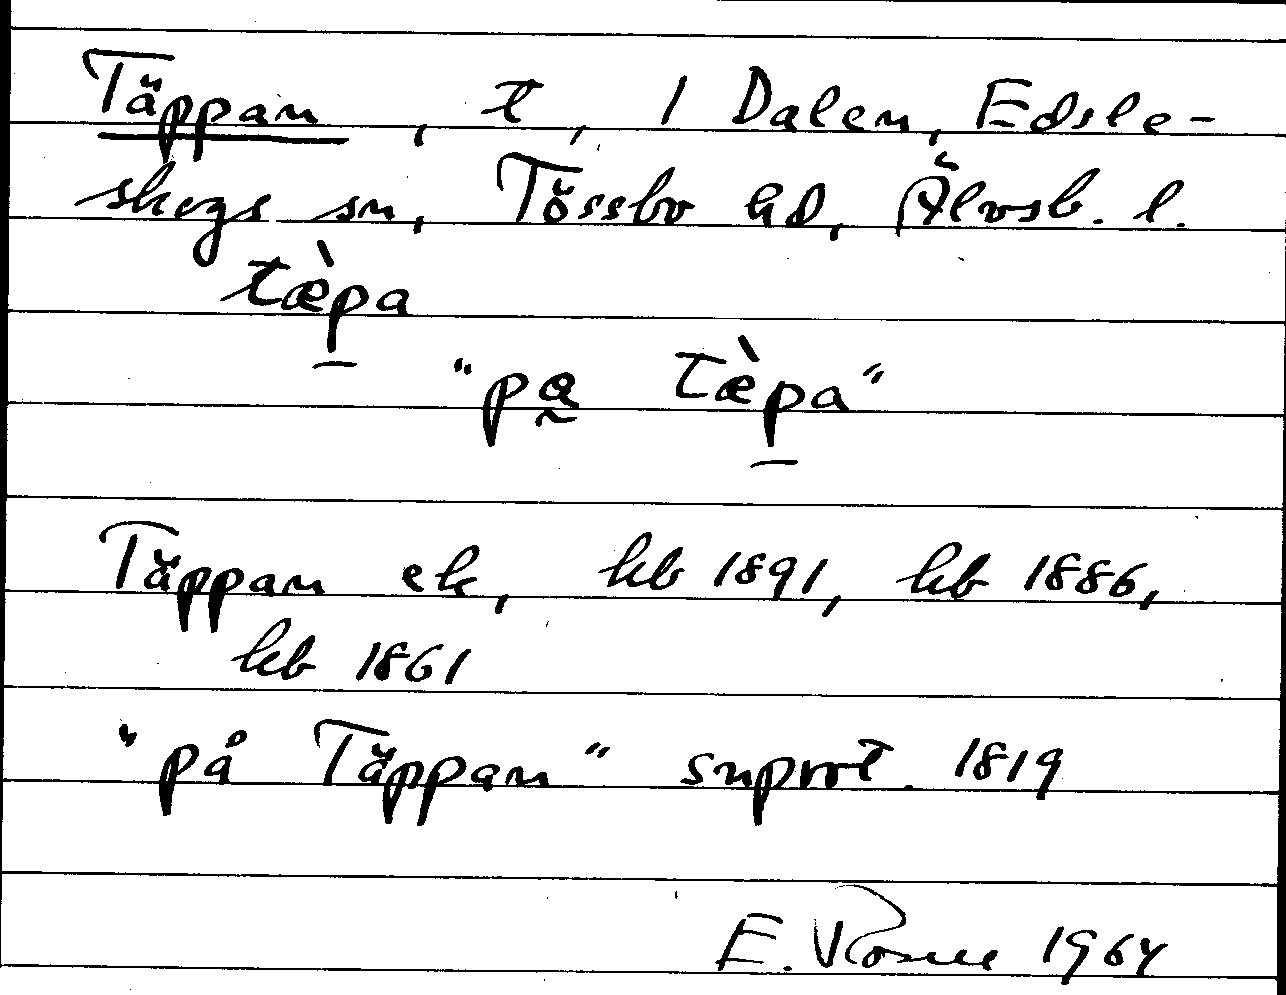 Täppan, t, 1 Dalen, Edsle-
skogs sn, Tössbo hd, Älvsb. l.
tæ̀p̱a
"pa̰ tæ̀p̱a"
Täppan ek, hb 1891, hb 1886,
hb 1861
"på Täppan" snprot. 1819
E. 1964